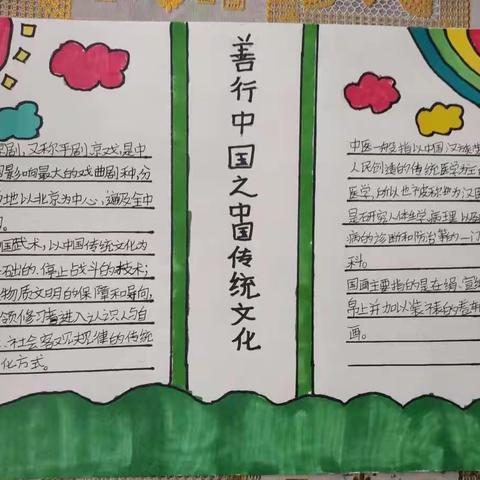 京剧，又称平剧、京戏，是中
国影响最大的戏曲剧种，分
布地以北京为中心，遍及全中
国。
国武术，以中国传统文化为
石出的、停止战斗的技术；
物质文明的保障和导向，
领修习者进入认识人与自
、社会客观规律的传统
化方式。
善行中国之中国传统文化
中医一般指以中国汉族劳
人民创造的传统医学为主的
医学，所以也被称为汉医
是研究人体生学、病理以及
病的诊断和防治等的一门
科。
国画主要指的是在绢、宣纸
帛上并加以装裱的卷轴
画。